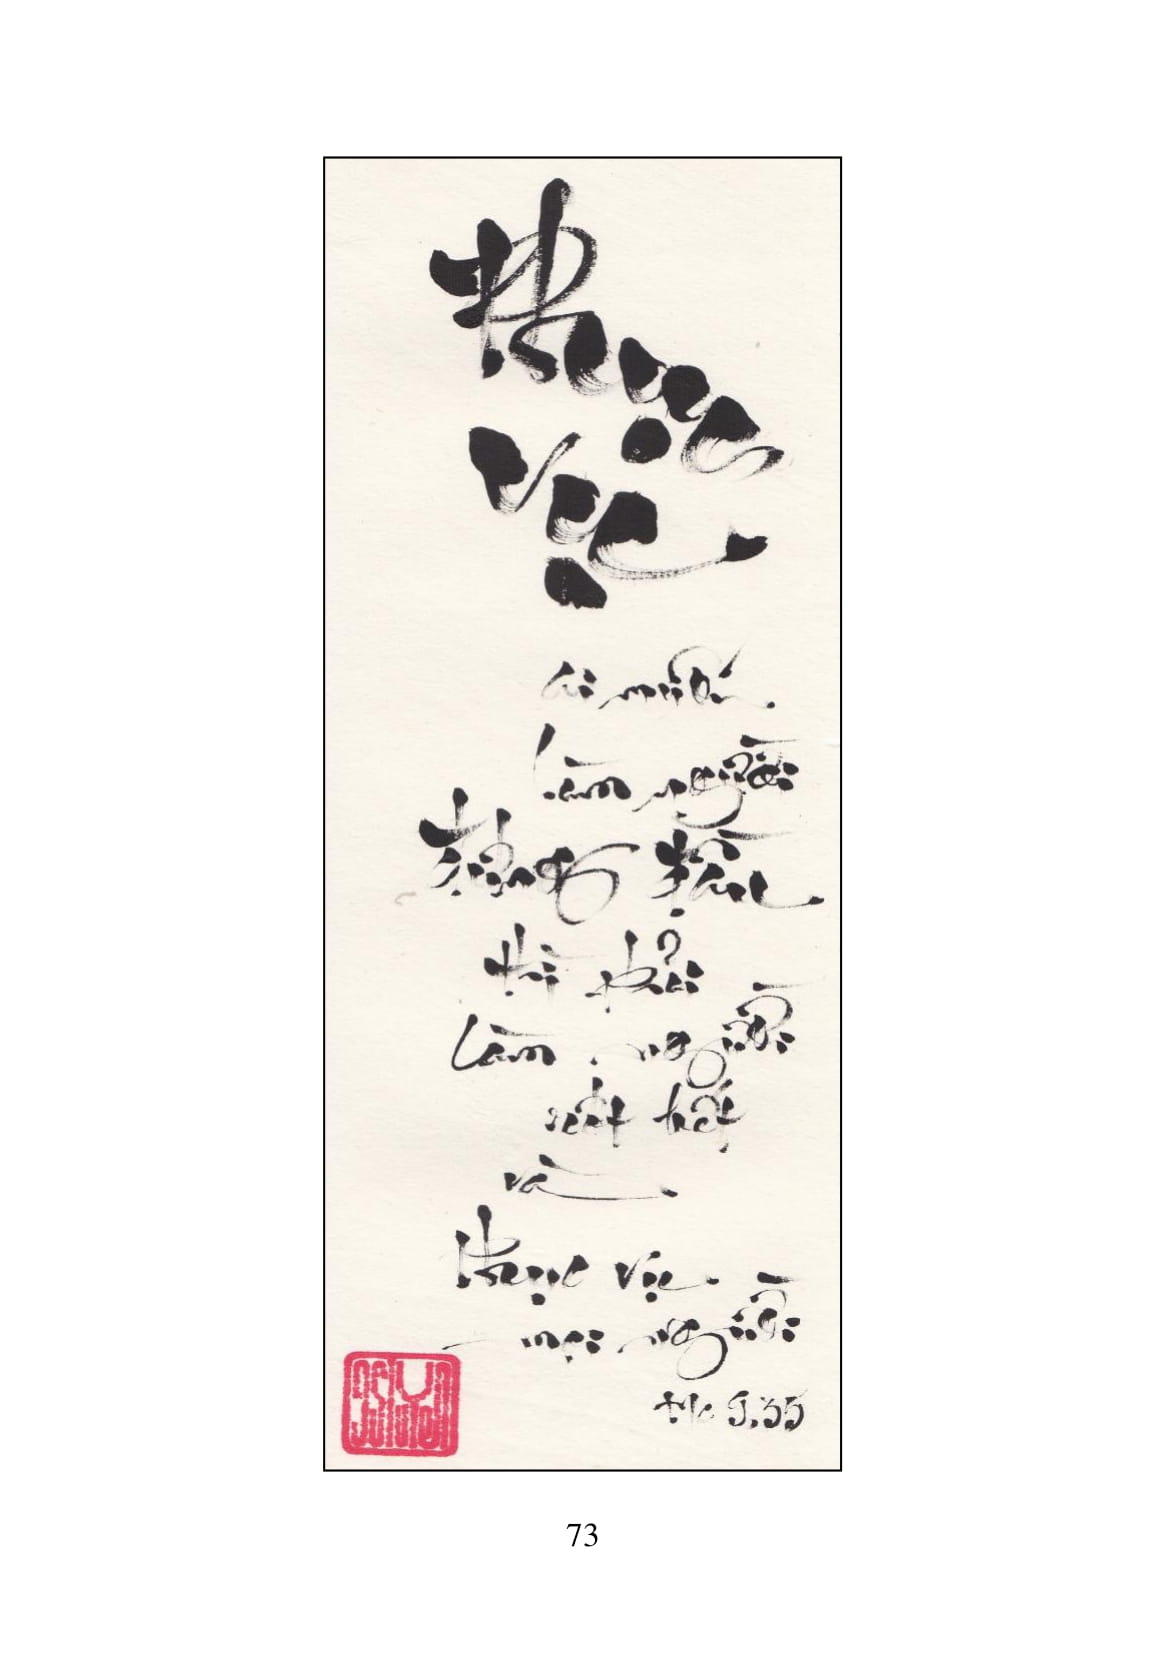 Phục
vụ
ai muốn
làm người
đứng đầu
thì phải
làm người
rốt hết
và
phục vụ
mọi người
Mc 9.35
73